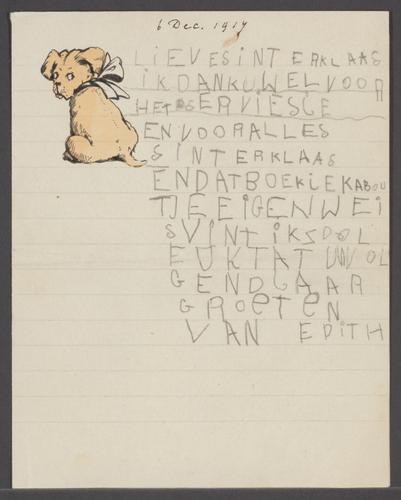 6 Dec. 1917
LIEVESINTERKLAAS
IKDANKUWELVOOR
HET SERVIESGE
ENVOORALLES
SINTERKLAAS
ENDATBOEKIEKABOU
TJEEIGENWEI
SVINTIK
GENDGAAR
GROETEN
VAN EDITH